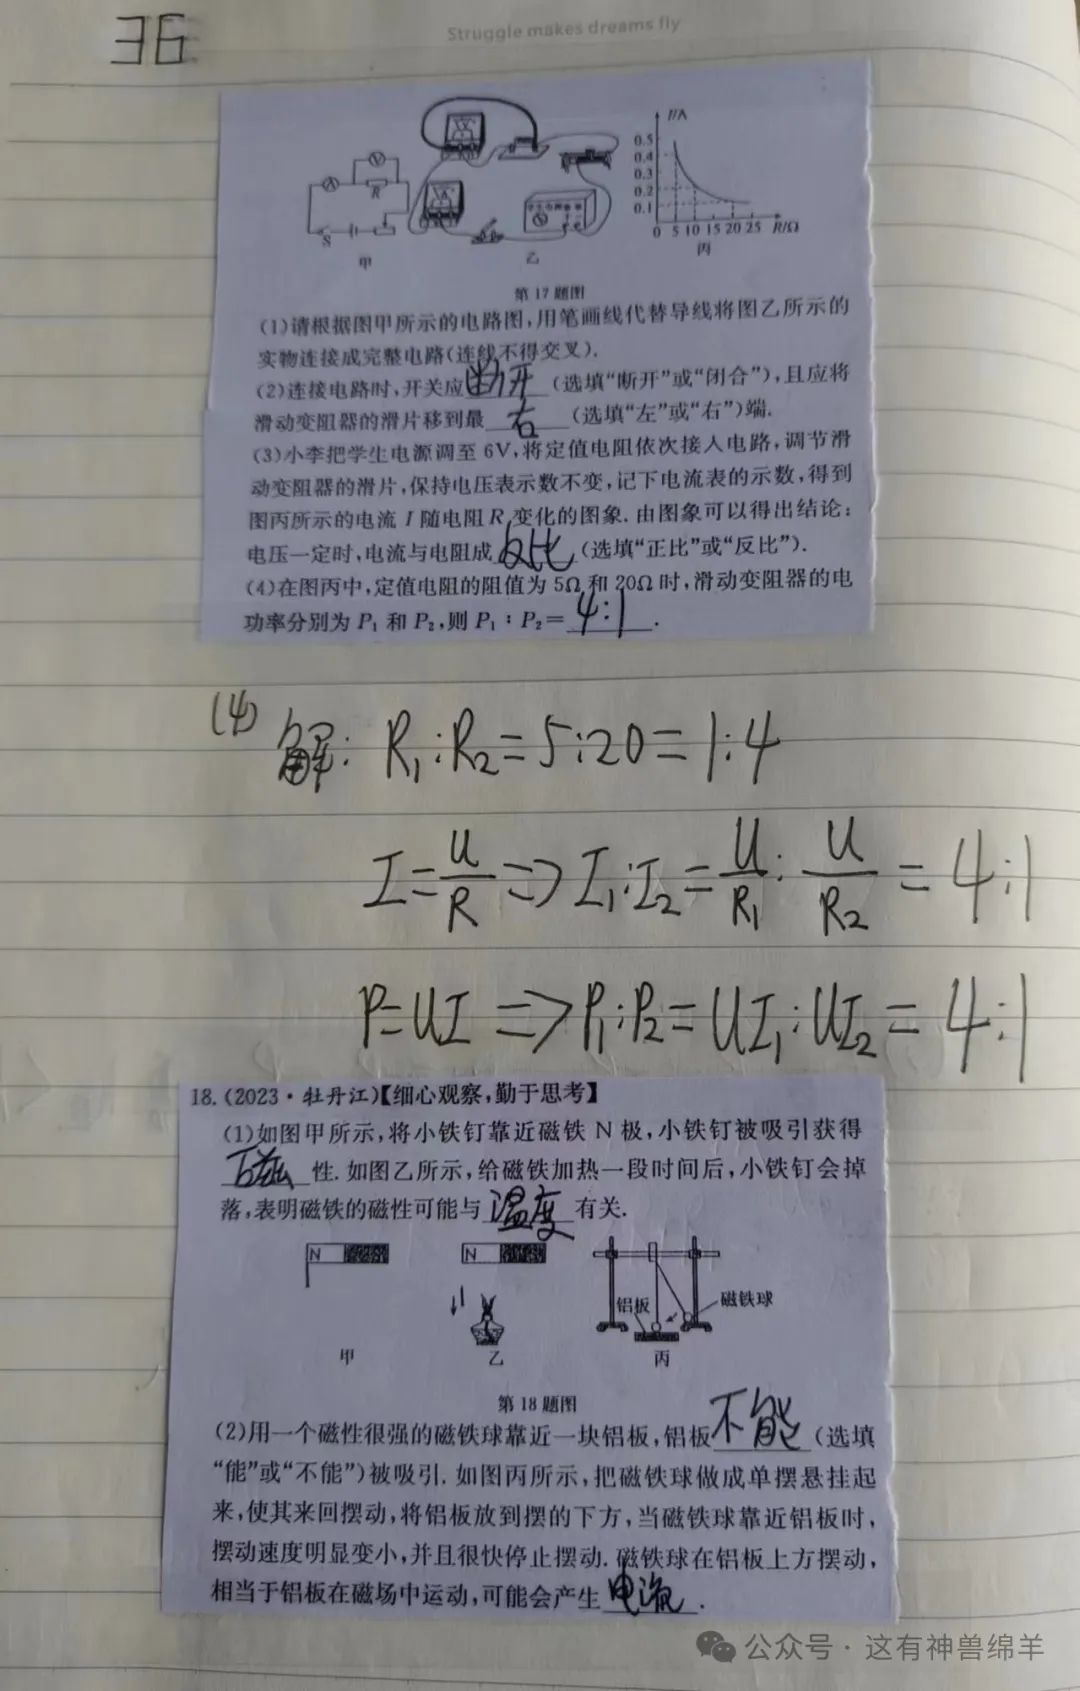 36
Struggle makes dreams fly
I/A
0.5
0.4
0.3
0.2
0.1
0 5 10 15 20 25 R/Ω
V
A
R
S
甲
乙
丙
第17题图
(1)请根据图甲所示的电路图,用笔画线代替导线将图乙所示的
实物连接成完整电路(连线不得交叉).
(2)连接电路时,开关应断开(选填“断开”或“闭合”),且应将
滑动变阻器的滑片移到最右(选填“左”或“右”)端.
(3)小李把学生电源调至6V,将定值电阻依次接入电路,调节滑
动变阻器的滑片,保持电压表示数不变,记下电流表的示数,得到
图丙所示的电流I随电阻R变化的图象.由图象可以得出结论:
电压一定时,电流与电阻成反比(选填“正比”或“反比”).
(4)在图丙中,定值电阻的阻值为5Ω和20Ω时,滑动变阻器的电
功率分别为P₁和P₂,则P₁:P₂=4:1.
(4) 解: R₁:R₂=5:20=1:4
I=U/R => I₁:I₂=U/R₁:U/R₂=4:1
P=UI => P₁:P₂=UI₁:UI₂=4:1
18.(2023·牡丹江)【细心观察,勤于思考】
(1)如图甲所示,将小铁钉靠近磁铁N极,小铁钉被吸引获得
磁性.如图乙所示,给磁铁加热一段时间后,小铁钉会掉
落,表明磁铁的磁性可能与温度有关.
N
N
铝板
磁铁球
甲
乙
丙
第18题图
(2)用一个磁性很强的磁铁球靠近一块铝板,铝板不能(选填
“能”或“不能”)被吸引.如图丙所示,把磁铁球做成单摆悬挂起
来,使其来回摆动,将铝板放到摆的下方,当磁铁球靠近铝板时,
摆动速度明显变小,并且很快停止摆动.磁铁球在铝板上方摆动,
相当于铝板在磁场中运动,可能会产生电流.
公众号·这有神兽绵羊